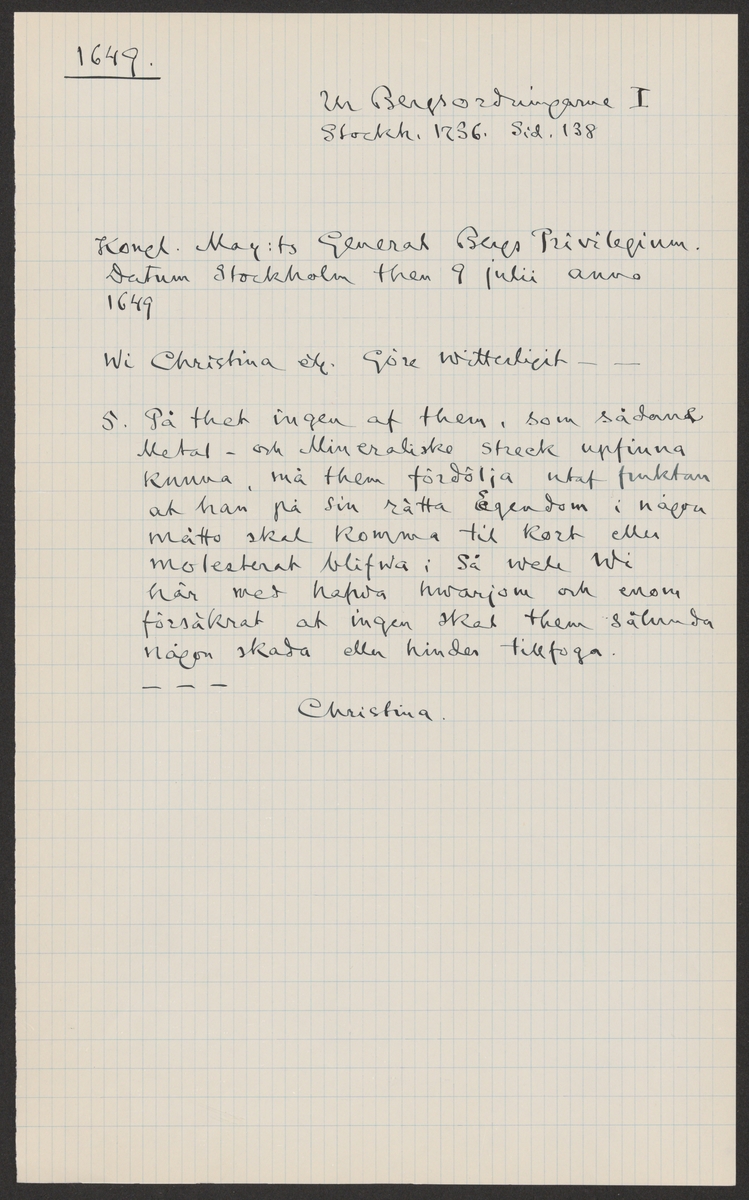 1649.
Ur Bergsordningarne I
Stockh. 1736. Sid. 138
Kongl. May:ts General Bergs Privilegium.
Datum Stockholm then 9 julii anno
1649
Wi Christina etc. Göre witterligit — —
5. På thet ingen af them, som sådane
Metal- och Mineraliske streck upfinna
kunna, må them fördölja utaf fruktan
at han på sin rätta Egendom i någon
måtto skal komma til kort eller
molesterat blifwa; Så wele Wi
här med hafwa hwarjom och enom
försäkrat at ingen skal them sålunda
någon skada eller hinder tillfoga.
— — —
Christina.